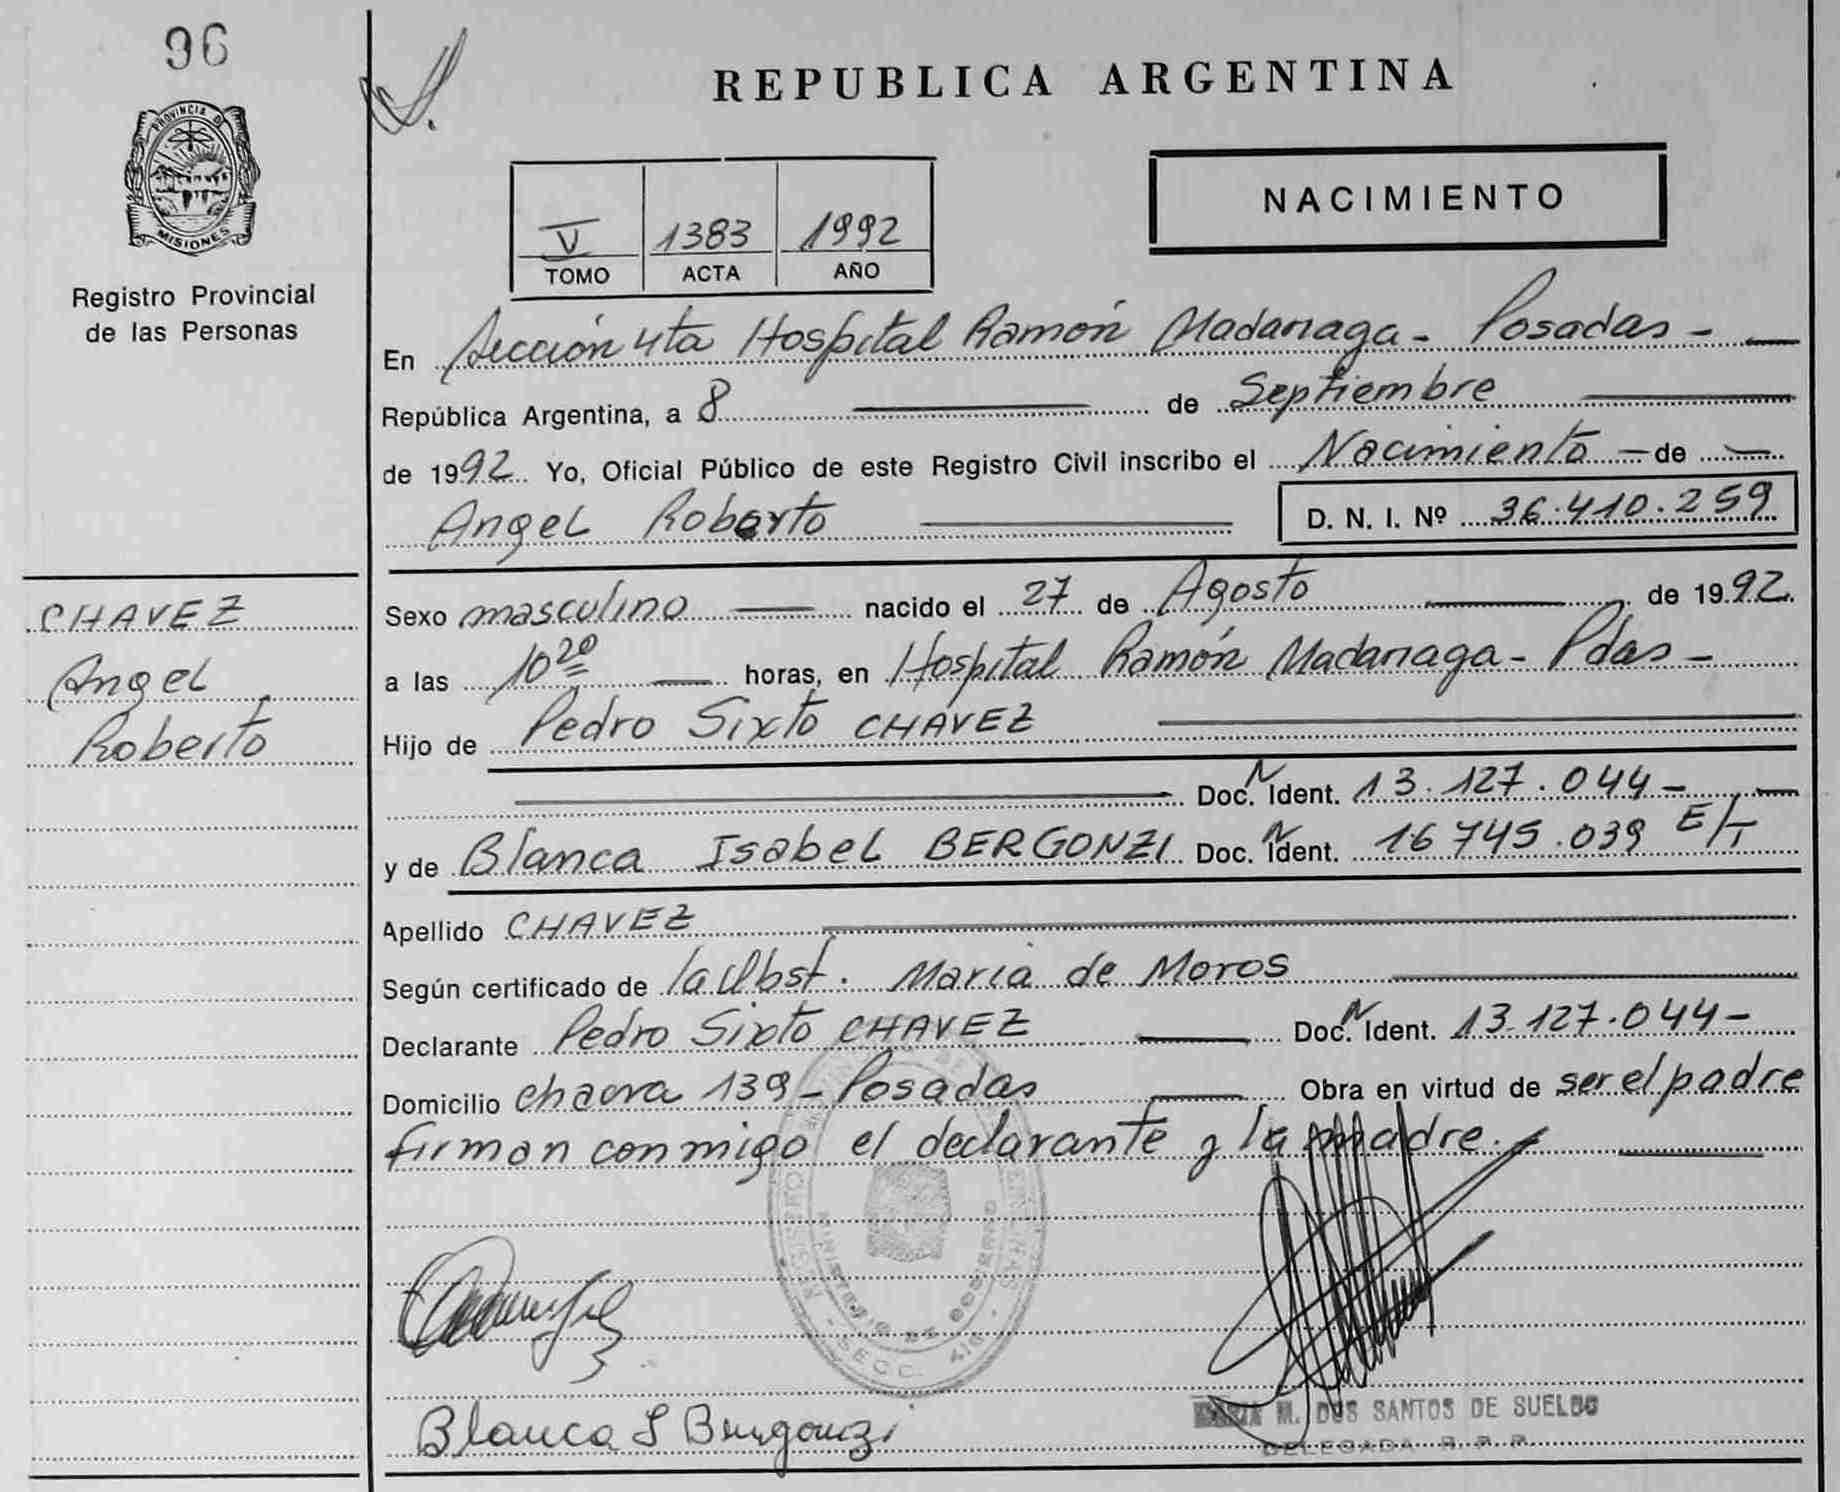 96
PROVINCIA DE
MISIONES
Registro Provincial
de las Personas
CHAVEZ
Angel
Roberto
REPUBLICA ARGENTINA
NACIMIENTO
V 1383 1992
TOMO ACTA AÑO
En Sección 4ta Hospital Ramón Madariaga - Posadas -
República Argentina, a 8 de Septiembre
de 1992 Yo, Oficial Público de este Registro Civil inscribo el Nacimiento - de
Angel Roberto D. N. I. Nº 36.410.259
Sexo masculino nacido el 27 de Agosto de 1992.
a las 10 20 horas, en Hospital Ramón Madariaga - Pdas -
Hijo de Pedro Sixto CHAVEZ
Doc. N Ident. 13.127.044-
y de Blanca Isabel BERGONZI Doc. N Ident. 16 745.039 E/T
Apellido CHAVEZ
Según certificado de la Obst. Maria de Moros
Declarante Pedro Sixto CHAVEZ Doc. N Ident. 13.127.044-
Domicilio chacra 139 - Posadas Obra en virtud de ser el padre
firman conmigo el declarante y la madre.
REGISTRO
MINISTERIO DE GOBIERNO
SECC. 4ta
Blanca I Bergonzi
MARIA M. DOS SANTOS DE SUELDO
DELEGADA R. P. P.